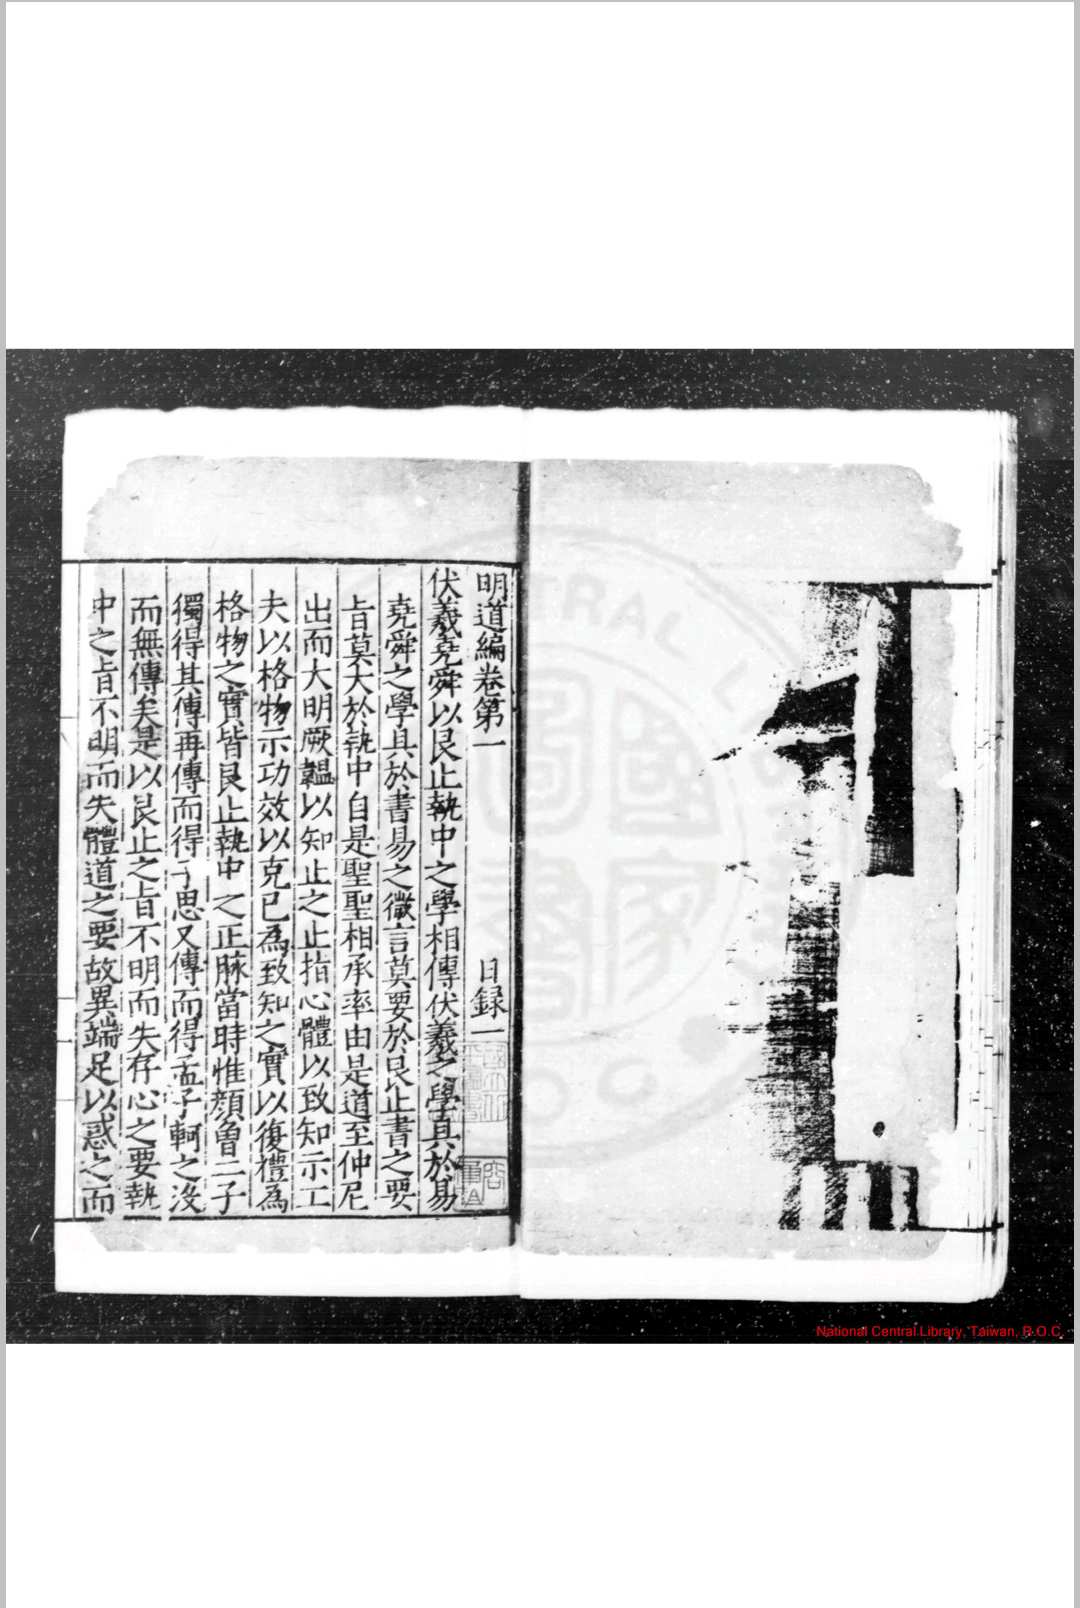 明道編卷第一　　日錄一
伏羲堯舜以艮止執中之學相傳伏羲之學具於易
堯舜之學具於書易之微言莫要於艮止書之要
旨莫大於執中自是聖聖相承率由是道至仲尼
出而大明厥韞以知止之止指心體以致知示工
夫以格物示功效以克己為致知之實以復禮為
格物之實皆艮止執中之正脉當時惟顏魯二子
獨得其傳再傳而得子思又傳而得孟子軻之沒
而無傳矣是以艮止之旨不明而失存心之要執
中之旨不明而失體道之要故異端足以惑之而
National Central Library, Taiwan, R.O.C.